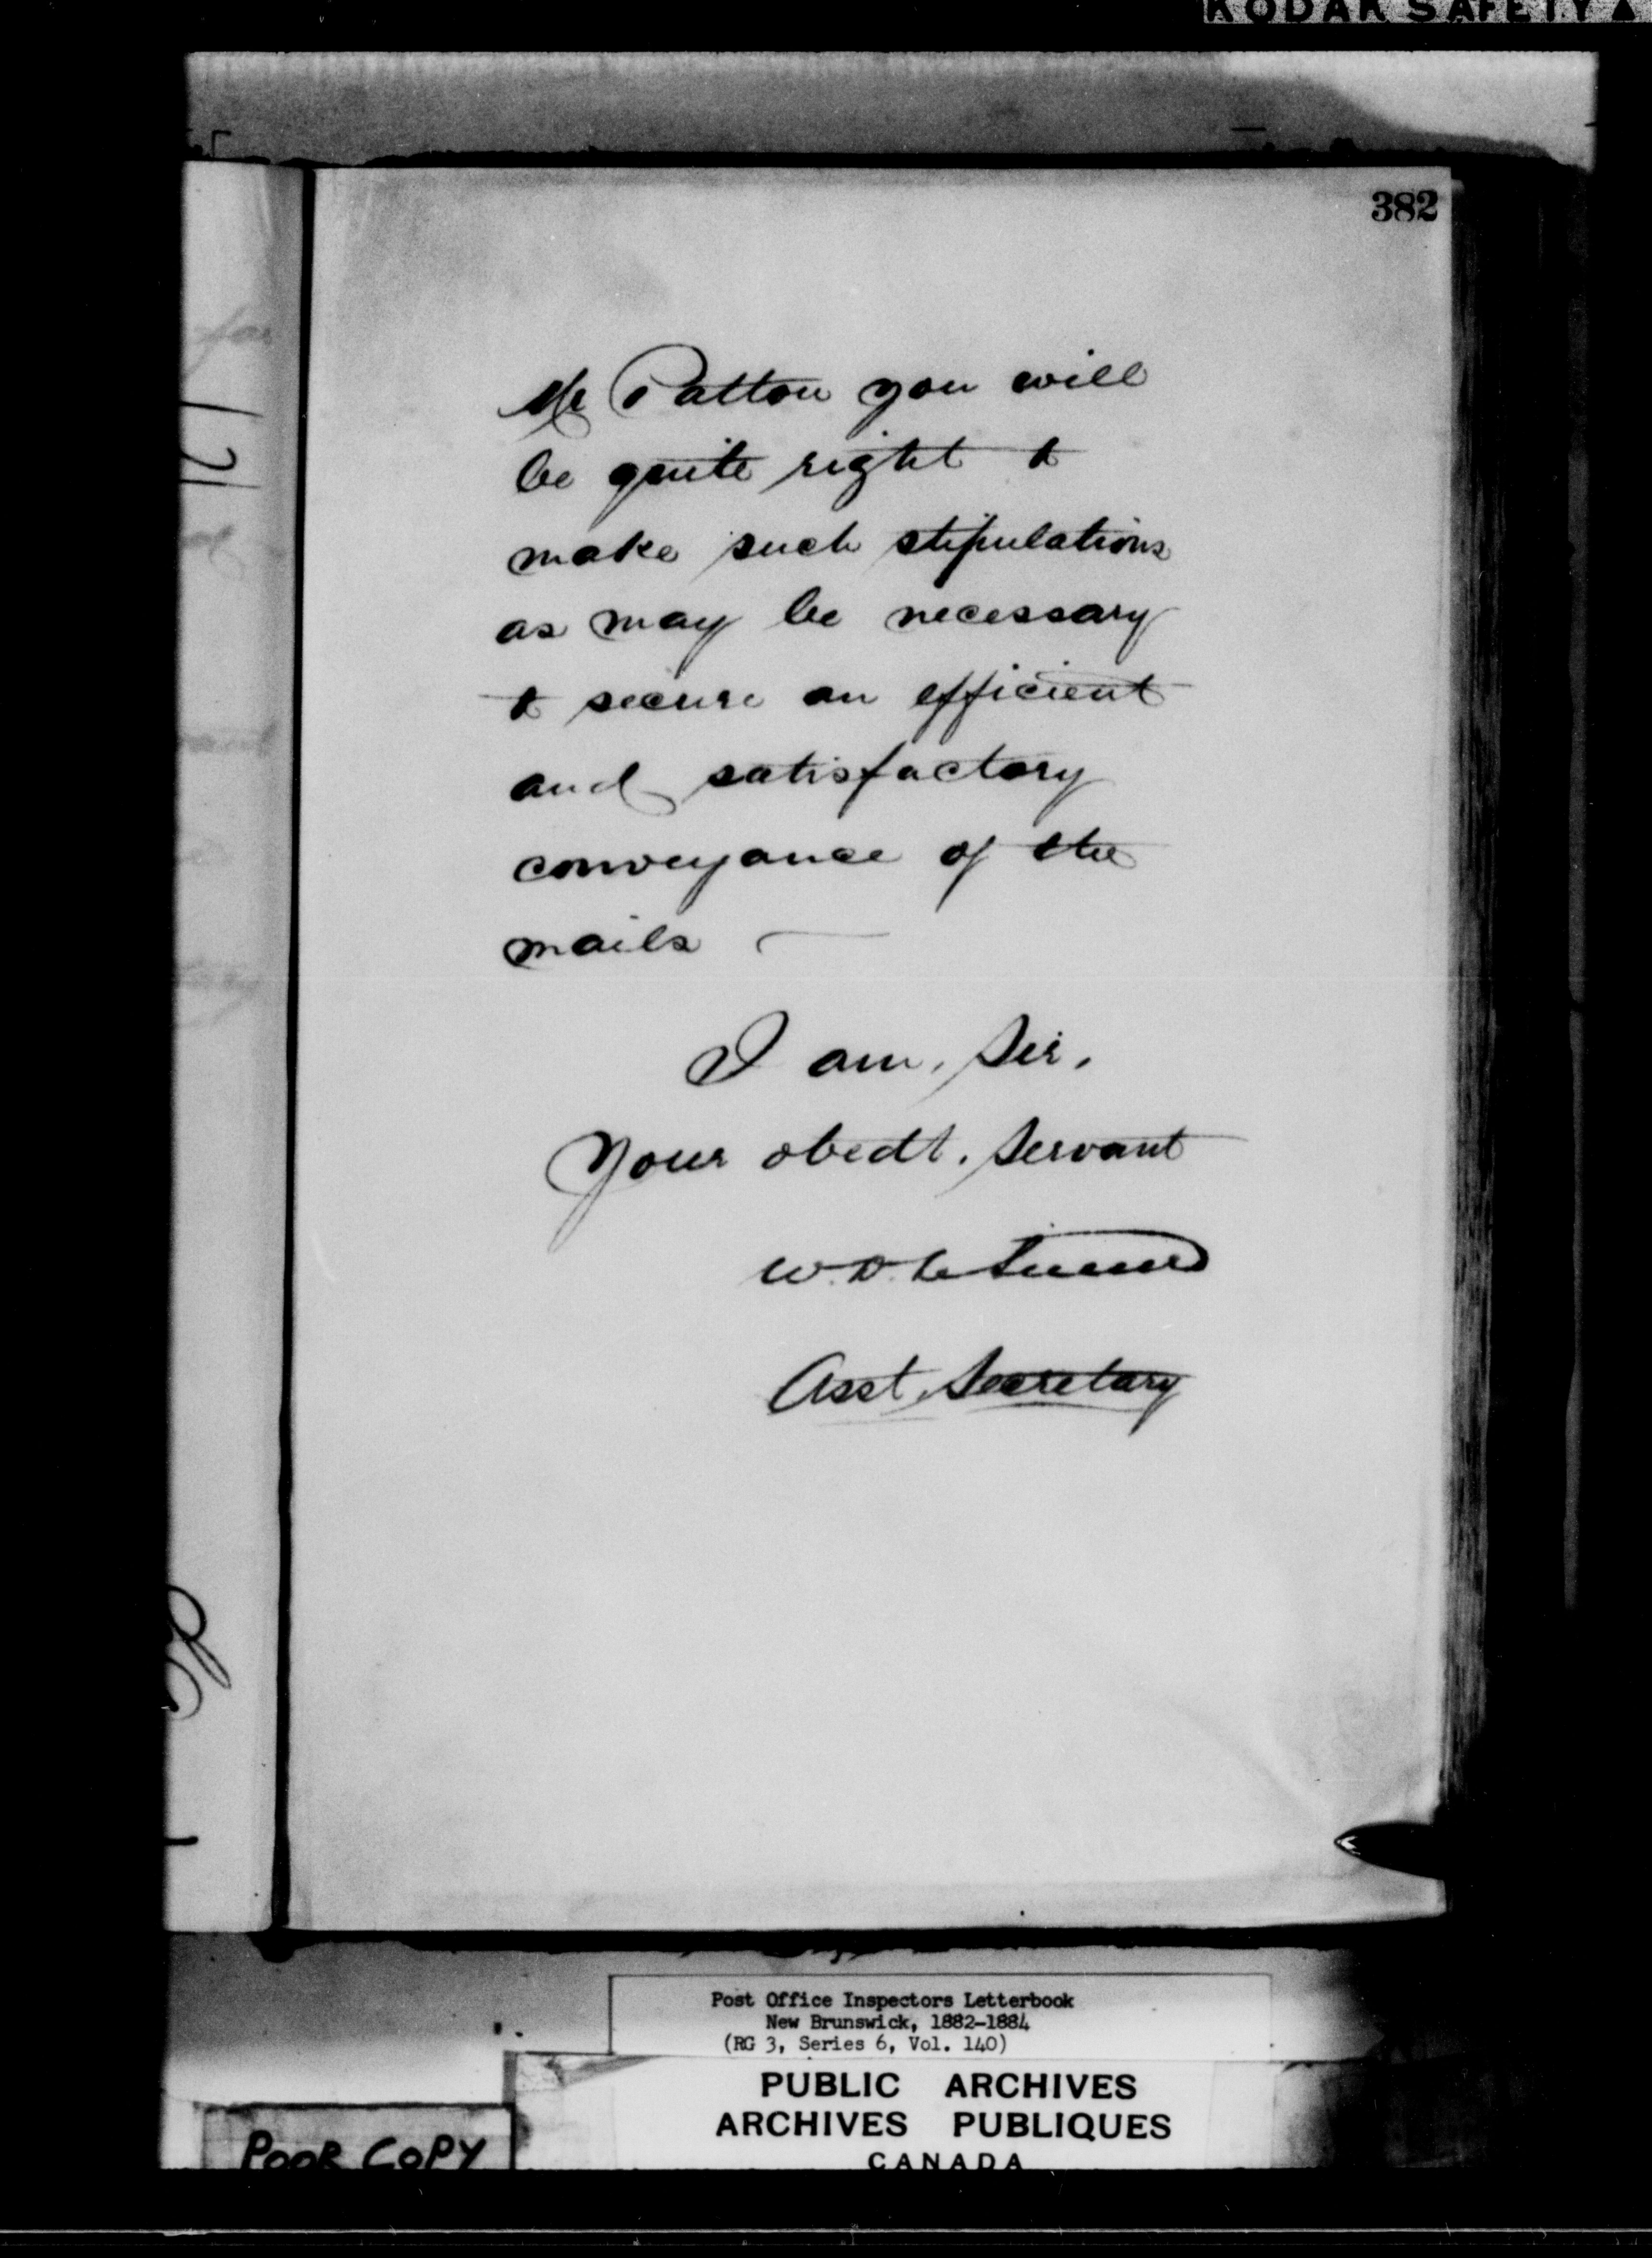 KODAK SAFETY
382
Mr Patton you will
be quite right to
make such stipulations
as may be necessary
to secure an efficient
and satisfactory
conveyance of the
mails —
I am, Sir,
Your obedt. Servant
Asst. Secretary
Post Office Inspectors Letterbook
New Brunswick, 1882-1884
(RG 3, Series 6, Vol. 140)
PUBLIC ARCHIVES
ARCHIVES PUBLIQUES
CANADA
POOR COPY